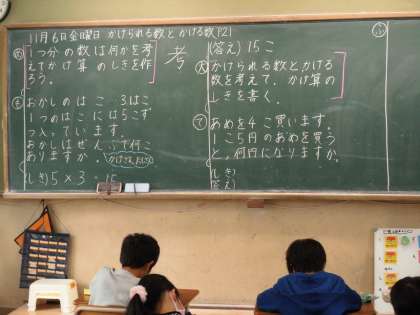 11月6日金曜日 かけられる数とかける数 P21
め
1つ分の数は何かを考
えてかけ算のしきを作
ろう。
考
も
おかしのはこ 3はこ
1つのはこには5こず
つ入っています。
おかしはぜんぶで何こ
ありますか。
(しき) 5×3=15
(答え) 15こ
かけられる数とかける
数を考えて、かけ算の
しきを書く。
て
あめを4こ買います。
1こ5円のあめを買う
と、何円になりますか。
しき)
答え)
ふ